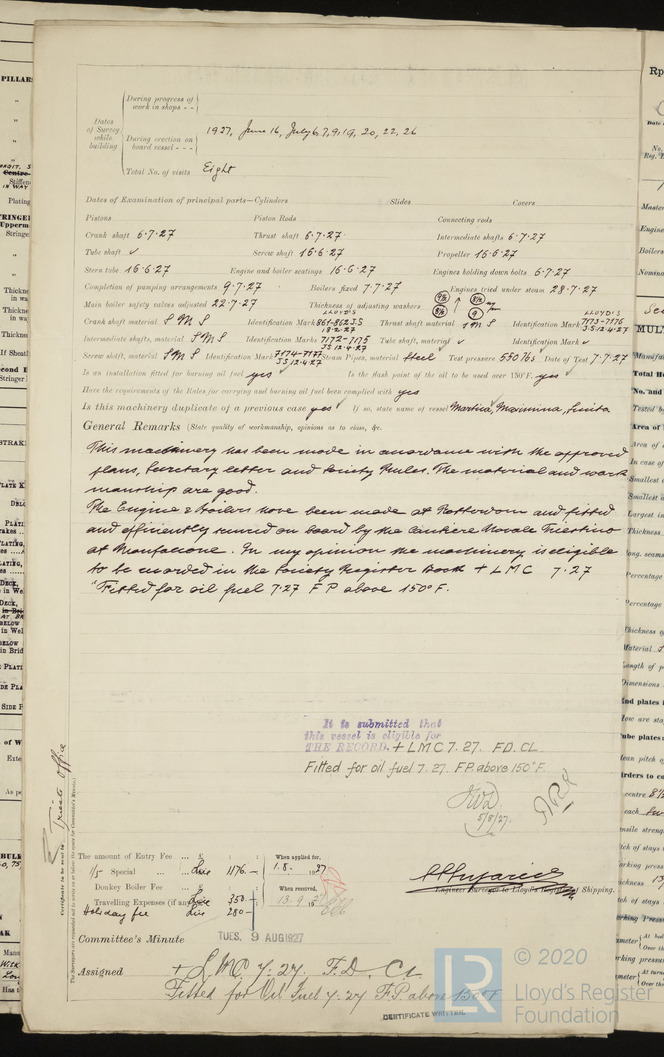 During progress of
work in shops - -
Dates
of Survey
while
building
During erection on
board vessel - - -
1927, June 16, July 6, 7, 9, 19, 20, 22, 26
Total No. of visits Eight
Dates of Examination of principal parts—Cylinders Slides Covers
Pistons Piston Rods Connecting rods
Crank shaft 6·7·27 Thrust shaft 6·7·27 Intermediate shafts 6·7·27
Tube shaft ✓ Screw shaft 16·6·27 Propeller 16·6·27
Stern tube 16·6·27 Engine and boiler seatings 16·6·27 Engines holding down bolts 6·7·27
Completion of pumping arrangements 9·7·27 Boilers fixed 7·7·27 Engines tried under steam 28·7·27
Main boiler safety valves adjusted 22·7·27 Thickness of adjusting washers
Crank shaft material S M S Identification Mark LLOYD'S 861-862 JS 18·2·27 Thrust shaft material S M S Identification Mark LLOYD'S 7173-7176 JS 12·4·27
Intermediate shafts, material S M S Identification Marks 7172-7175 JS 12·4·27 Tube shaft, material ✓ Identification Mark ✓
Screw shaft, material S M S Identification Mark 7174-7177 JS 12·4·27 Steam Pipes, material Steel Test pressure 550 lbs Date of Test 7·7·27
Is an installation fitted for burning oil fuel yes Is the flash point of the oil to be used over 150°F. yes
Have the requirements of the Rules for carrying and burning oil fuel been complied with yes
Is this machinery duplicate of a previous case yes If so, state name of vessel Martica, Maximina, Lunita
General Remarks (State quality of workmanship, opinions as to class, &c.
This machinery has been made in accordance with the approved
plans, Secretary letter and Society Rules. The material and work
manship are good.
The Engine & boilers have been made at Rotterdam and fitted
and efficiently secured on board by the Cantiere Navale Triestino
at Monfalcone. In my opinion the machinery is eligible
to be recorded in the Society Register Book + L M C 7·27
"Fitted for oil fuel 7·27 F P above 150° F.
It is submitted that
this vessel is eligible for
THE RECORD. + LMC 7.27. FD. CL
Fitted for oil fuel 7.27. F.P. above 150°F.
5/8/27.
Certificate to be sent to Trieste Office
The amount of Entry Fee ... £ : : When applied for,
1/5 Special ... ... Lire 1176.— 1.8. 1927
Donkey Boiler Fee ... £ : : When received,
Travelling Expenses (if any) Lire 350.— 13.9.27
Holiday fee Lire 280—
Engineer Surveyor to Lloyd's Register of Shipping.
Committee's Minute TUES. 9 AUG 1927
Assigned + L.M.C. 7.27. F.D., C.L.
Fitted for Oil Fuel 7.27 F.P. above 150°F
CERTIFICATE WRITTEN
LR
© 2020
Lloyd's Register
Foundation